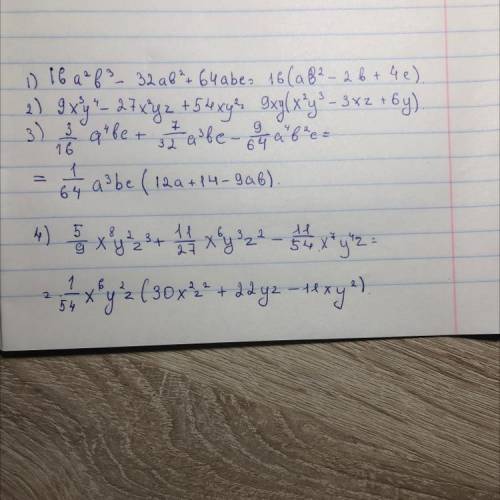 1) 16a²b³ - 32ab² + 64abc = 16(ab² - 2b + 4c)
2) 9x³y⁴ - 27x²yz + 54xy² = 9xy(x²y³ - 3xz + 6y)
3) 3/16 a⁴bc + 7/32 a³bc - 9/64 a⁴b²c =
= 1/64 a³bc (12a + 14 - 9ab).
4) 5/9 x⁸y²z³ + 11/27 x⁶y³z² - 11/54 x⁷y⁴z =
= 1/54 x⁶y²z (30x²z² + 22yz - 11xy²)